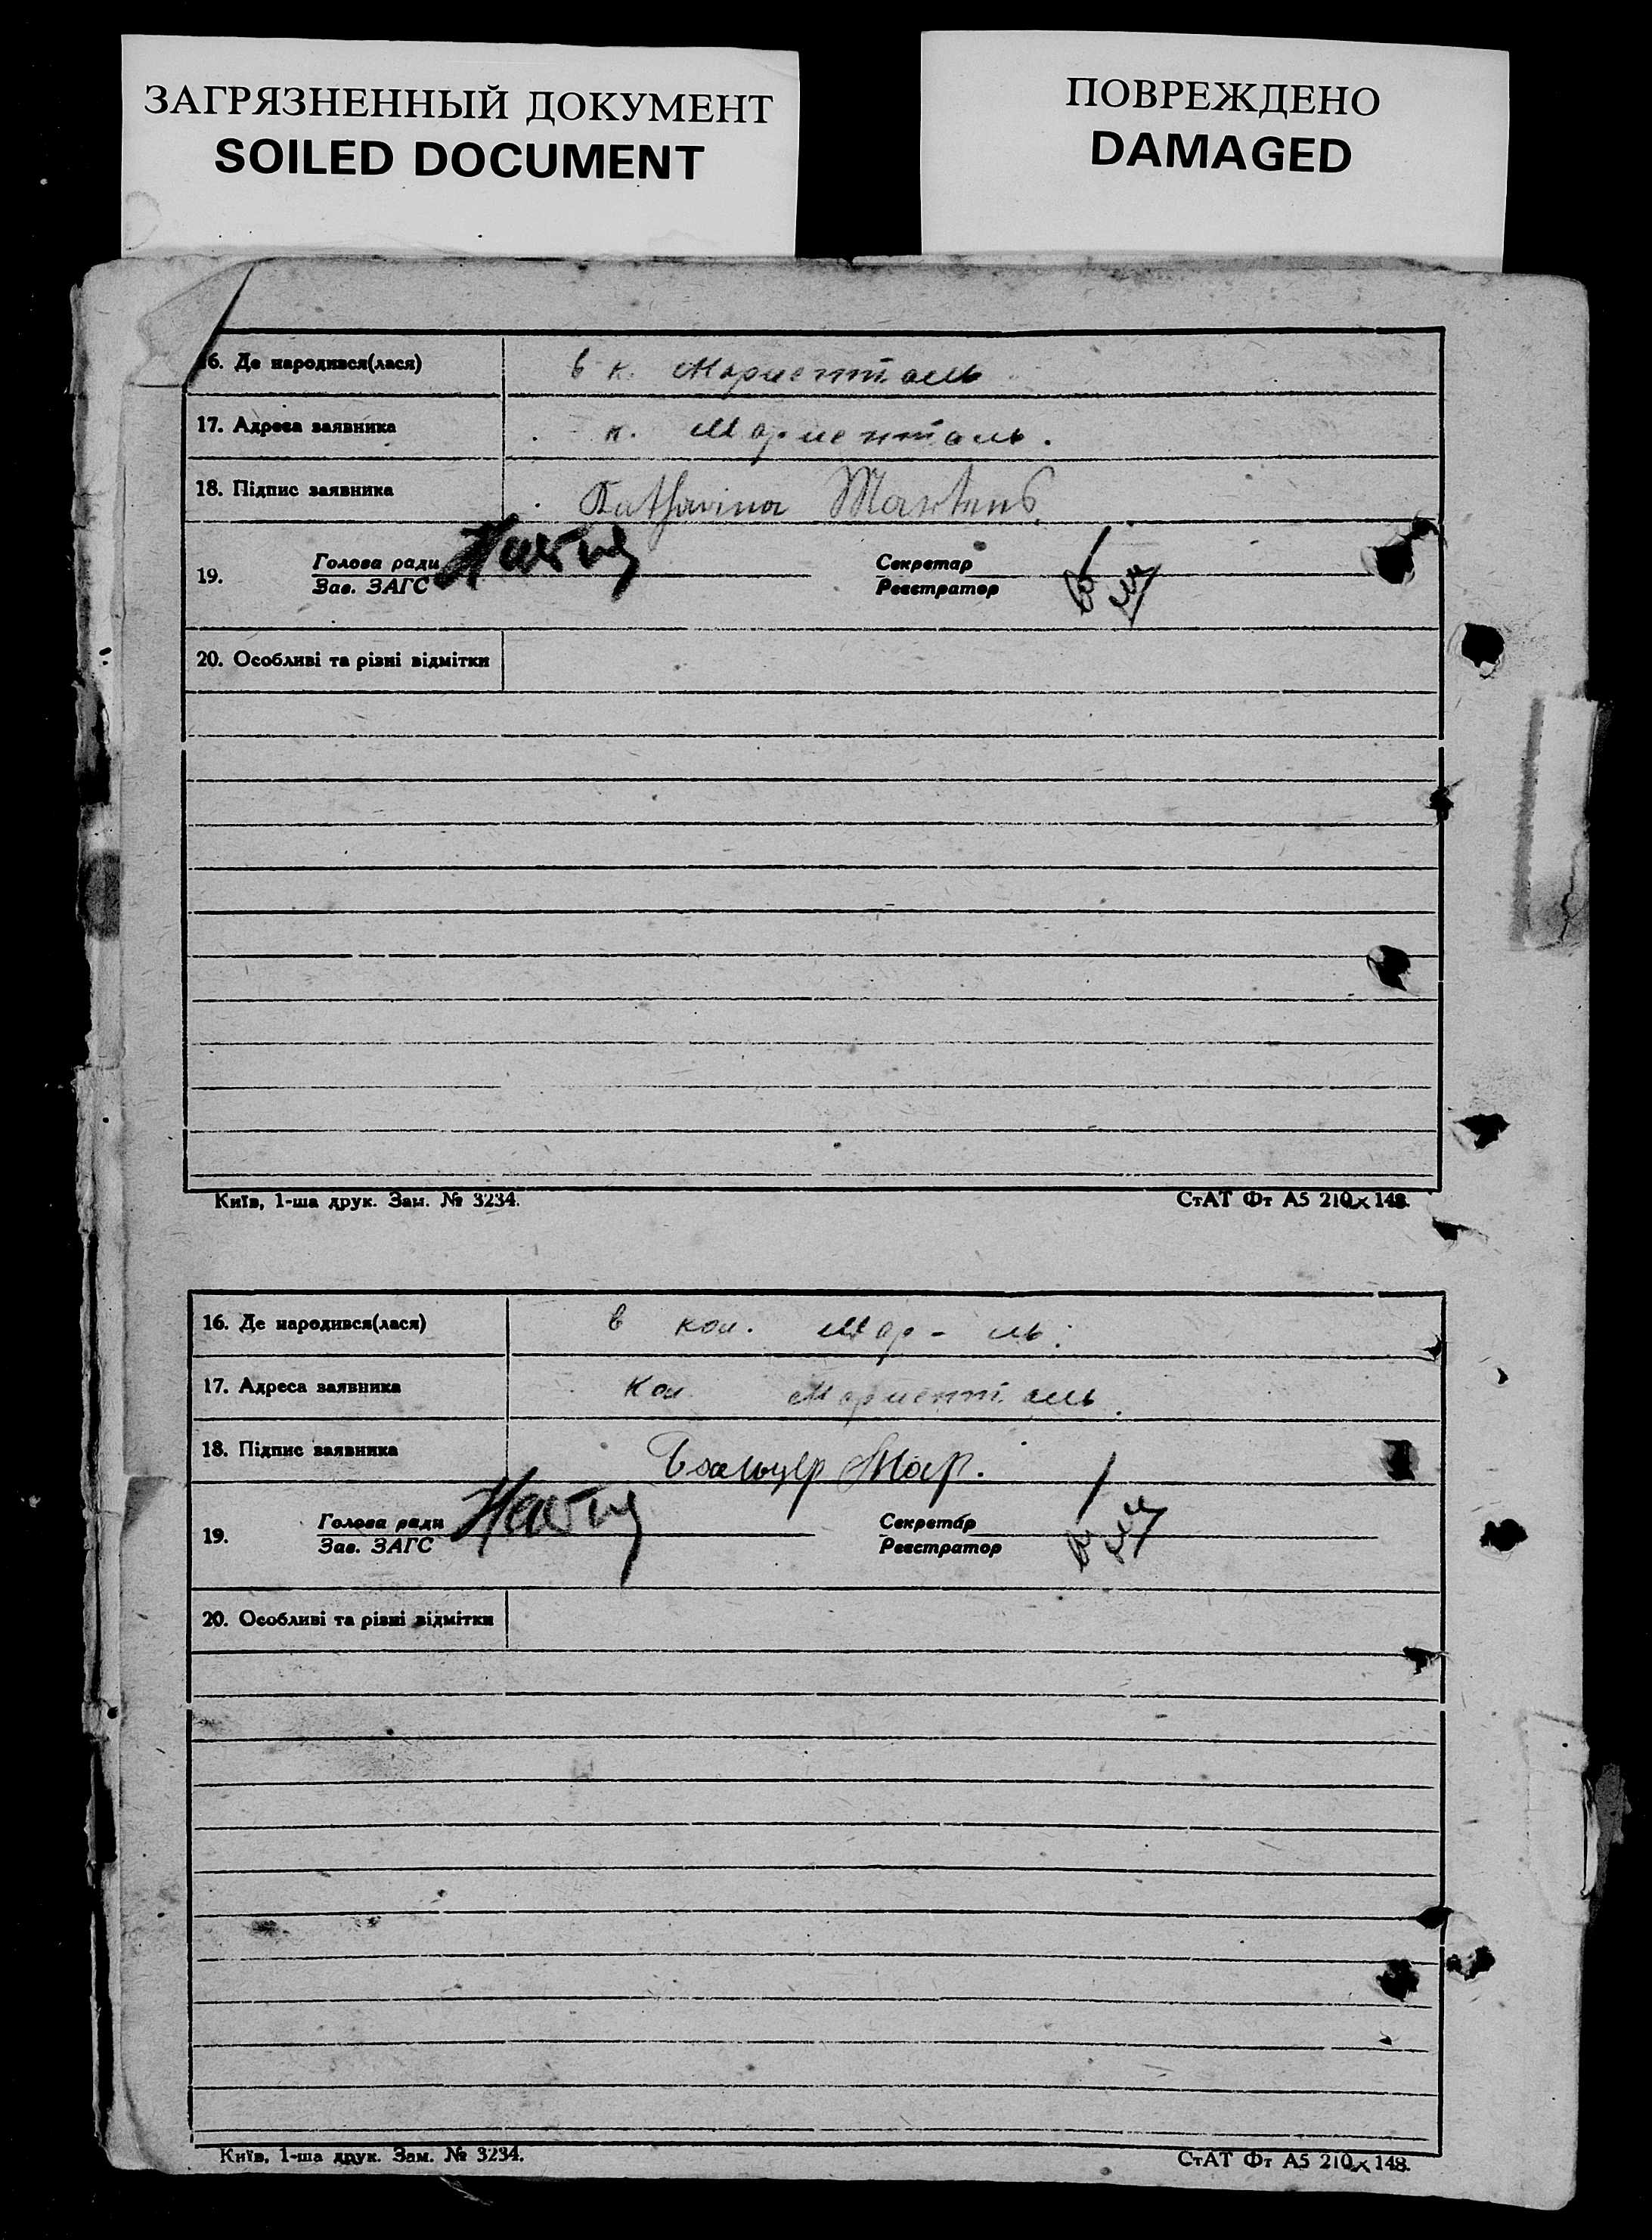 ЗАГРЯЗНЕННЫЙ ДОКУМЕНТ
SOILED DOCUMENT
ПОВРЕЖДЕНО
DAMAGED
16. Де народився(лася) в к. Мариенталь
17. Адреса заявника к. Мариенталь.
18. Підпис заявника Katharina Martens.
19. Голова ради Секретар
Зав. ЗАГС Реєстратор
20. Особливі та різні відмітки
Київ, 1-ша друк. Зам. № 3234. СтАТ Фт А5 210×148.
16. Де народився(лася) в кол. Мар-ль.
17. Адреса заявника Кол Мариенталь.
18. Підпис заявника Бальцер Мар.
19. Голова ради Секретар
Зав. ЗАГС Реєстратор
20. Особливі та різні відмітки
Київ, 1-ша друк. Зам. № 3234. СтАТ Фт А5 210×148.